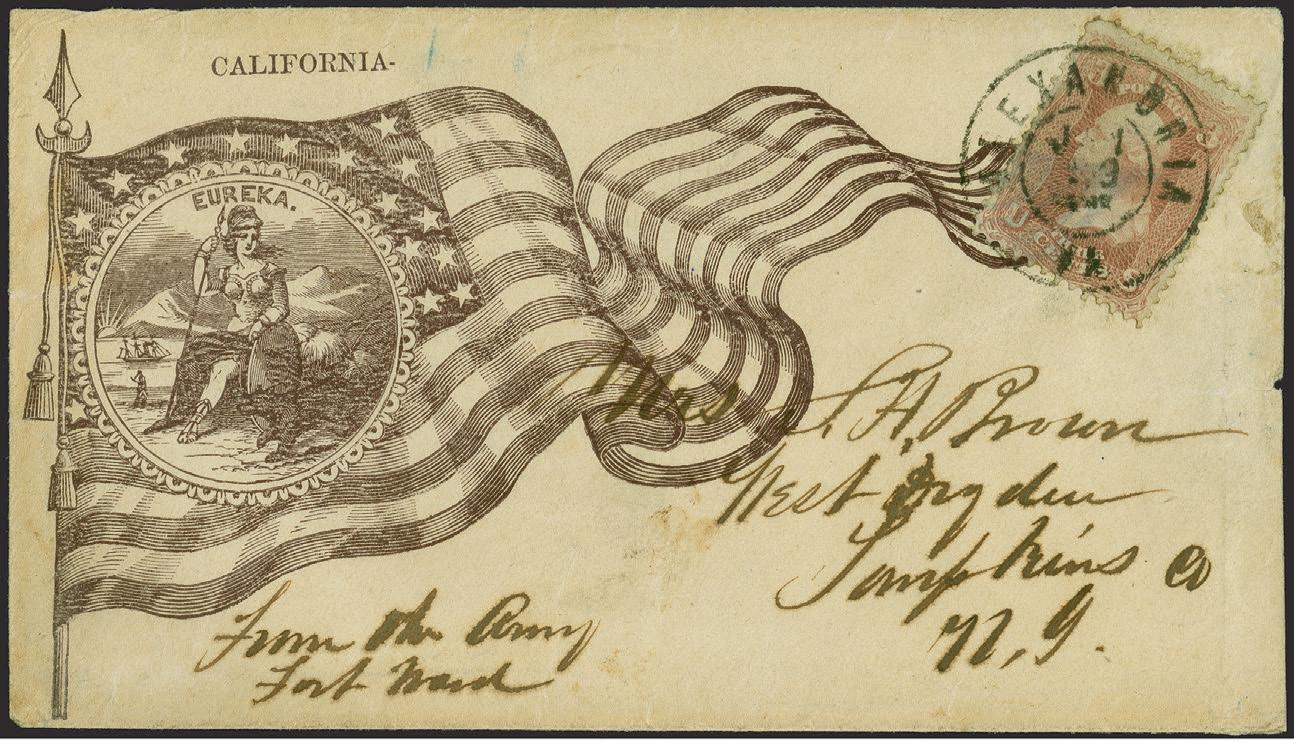 CALIFORNIA-
EUREKA.
ALEXANDRIA
Va
Mrs S. H. Brown
West Dryden
Tompkins Co
N, Y.
From the Army
Fort Ward